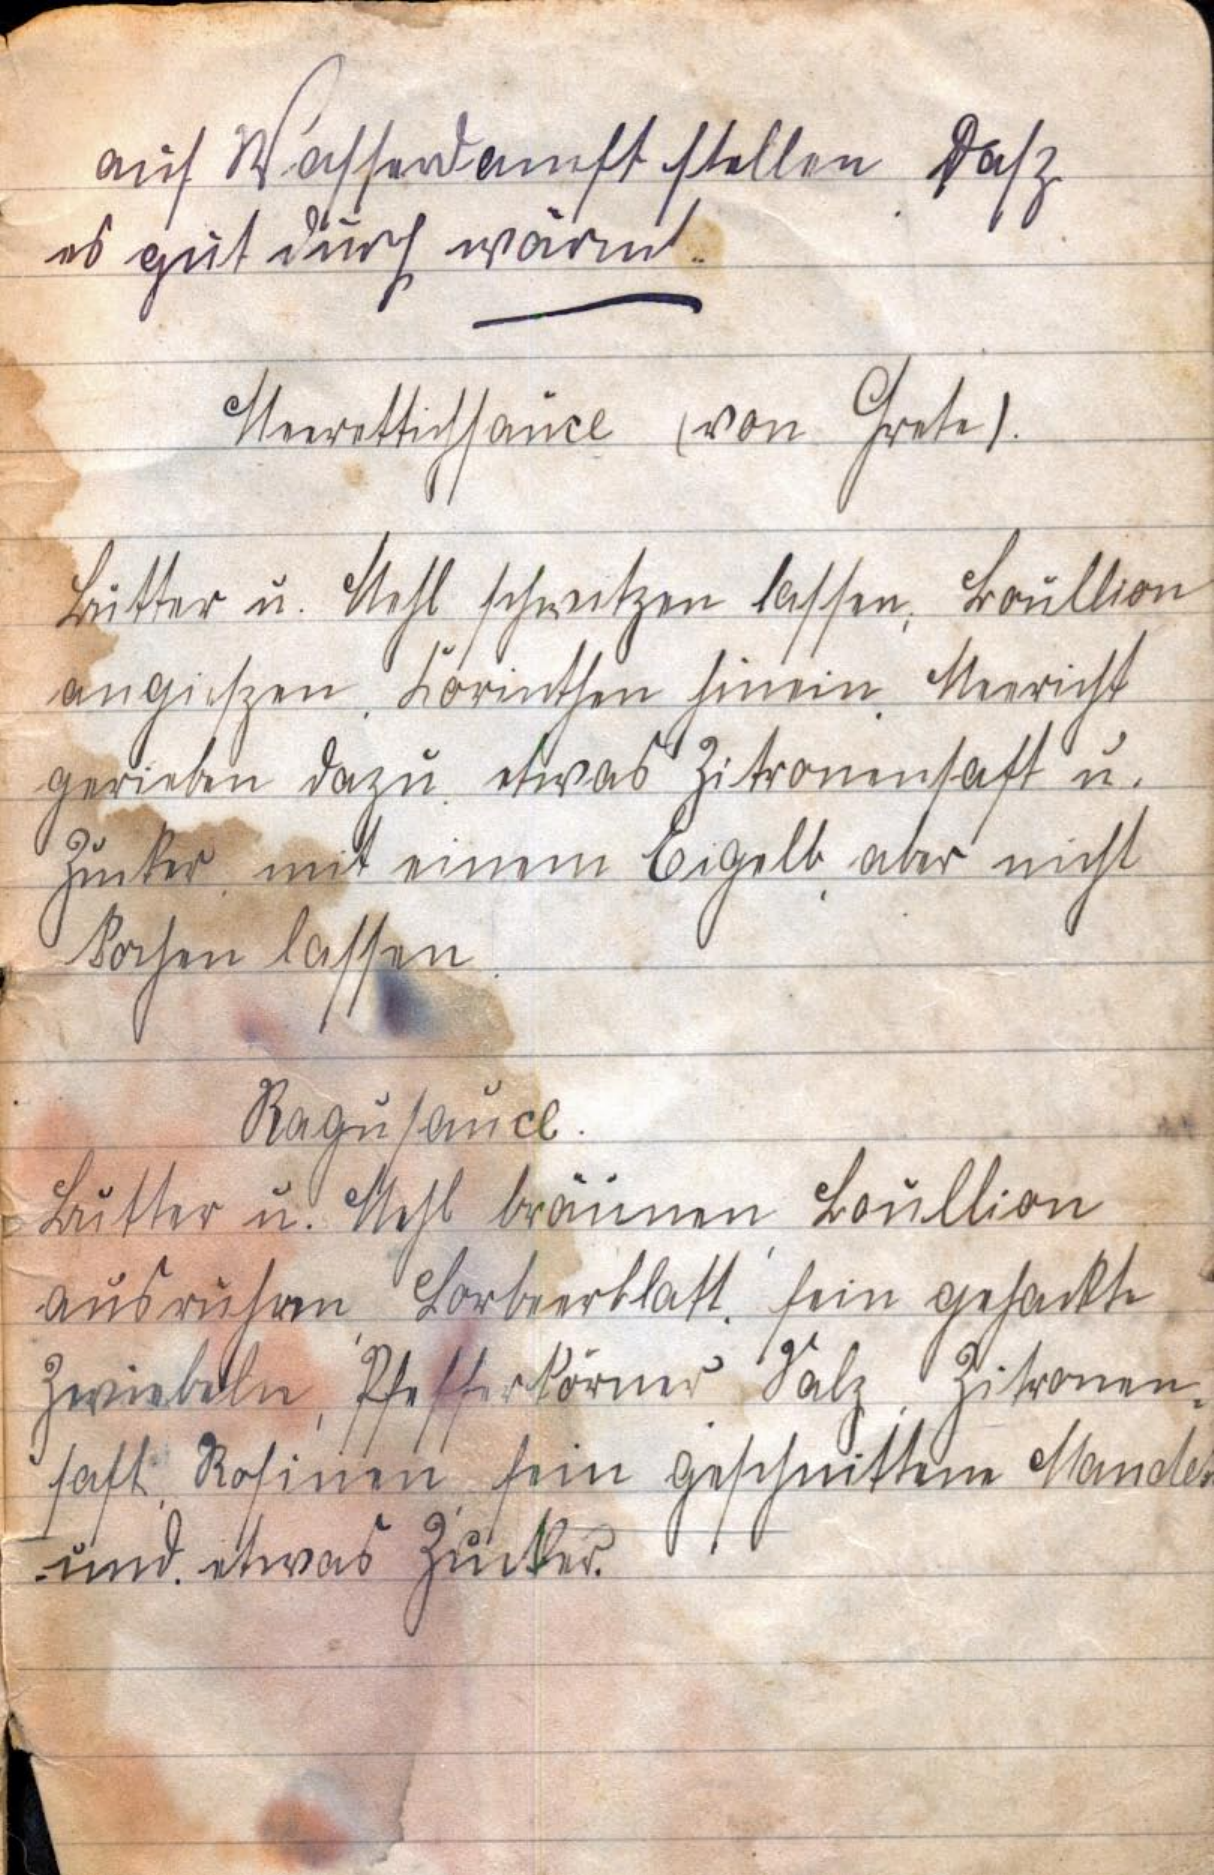 auf Wasserdampft stellen Dasz
es gut durch wärmt.
Meerettichsauce (von Grete).
Butter u. Mehl schwitzen lassen, Boullion
angieszen, Korinthen hinein, Meericht
gerieben dazu, etwas Zitronensaft u.
Zucker, mit einem Eigelb, aber nicht
kochen lassen.
Ragusauce.
Butter u. Mehl bräunen, Boullion
ausrühren, Lorbeerblatt, fein gehackte
Zwiebeln, Pfefferkörner, Salz, Zitronen-
saft, Rosinen, fein geschnittene Mandeln
und etwas Zucker.